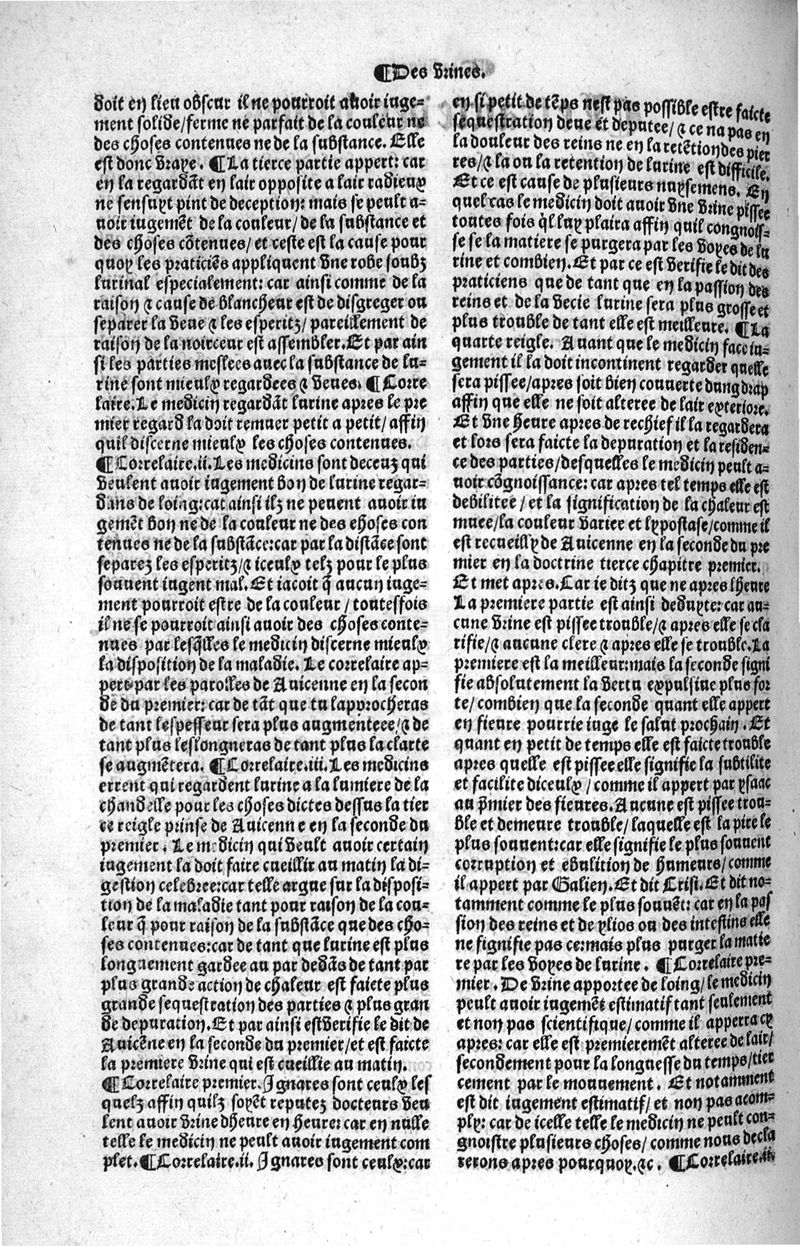 ¶Des vrines.
doit en lieu obscur il ne pourroit auoir iuge-
ment solide/ferme ne parfait de la couleur ne
des choses contenues ne de la substance. Elle
est donc vraye. ¶La tierce partie appert: car
en la regardāt en lair opposite a lair radieux
ne sensuyt pint de deception: mais se peult a-
uoir iugemēt de la couleur/de la substance et
des choses cōtenues/et ceste est la cause pour
quoy les praticiēs appliquent vne robe soubz
lurinal especialement: car ainsi comme de la
raison ⁊ cause de blancheur est de disgreger ou
separer la veue ⁊ les esperitz/pareillement de
raison de la noirceur est assembler. Et par ain
si les parties meslees auec la substance de lu-
rine sont mieulx regardees ⁊ veues. ¶Corre
laire. Le medicin regardāt lurine apres le pre
mier regard la doit remuer petit a petit/affin
quil discerne mieulx les choses contenues.
¶Correlaire.ii. Les medicins sont deceuz qui
veulent auoir iugement bon de lurine regar-
dans de loing: cat ainsi ilz ne peuent auoir iu
gemēt bon ne de la couleur ne des choses con
tenues ne de la substāce: car par la distāce sont
separez les esperitz/⁊ iceulx telz pour le plus
souuent iugent mal. Et iacoit q̄ aucun iuge-
ment pourroit estre de la couleur/toutesfois
il ne se pourroit ainsi auoir des choses conte-
nues par lesq̄lles le medicin discerne mieulx
la disposition de la maladie. Le correlaire ap-
pert par les parolles de Auicenne en la secon
de du premier: car de tāt que tu lapprocheras
de tant lespesseur sera plus augmenteee/⁊ de
tant plus leslongneras de tant plus la clarte
se augmētera. ¶Correlaire.iii. Les medicins
errent qui regardent lurine a la lumiere de la
chandelle pour les choses dictes dessus la tier
ce reigle prinse de Auicenne en la seconde du
premier. Le medicin qui veult auoir certain
iugement la doit faire cueillir au matin la di-
gestion celebree: car telle argue sur la disposi-
tion de la maladie tant pour raison de la cou-
leur q̄ pour raison de la substāce que des cho-
ses contenues: car de tant que lurine est plus
longuement gardee au par dedās de tant par
plus grande action de chaleur est faicte plus
grande sequestration des parties ⁊ plus gran
de depuration. Et par ainsi est verifie le dit de
Auicēne en la seconde du premier/et est faicte
la premiere vrine qui est cueillie au matin.
¶Correlaire premier. Ignares sont ceulx les
quelz affin quilz soyēt reputez docteurs veu
lent auoir vrine dheure en heure: car en nulle
telle le medicin ne peult auoir iugement com
plet. ¶Correlaire.ii. Ignares sont ceulx: car
en si petit de tēps nest pas possible estre faicte
sequestration deue et deputee/⁊ ce na pas en
la douleur des reins ne en la retētion des pier
res/⁊ la ou la retention de lurine est difficile.
Et ce est cause de plusieurs nuysemens. En
quel cas le medicin doit auoir vne vrine pissee
toutes fois q̄l luy plaira affin quil congnois-
se se la matiere se purgera par les voyes de lu
rine et combien. Et par ce est verifie le dit des
praticiens que de tant que en la passion des
reins et de la vecie lurine sera plus grosse et
plus trouble de tant elle est meilleure. ¶La
quarte reigle. Auant que le medicin face iu-
gement il la doit incontinent regarder quelle
sera pissee/apres soit bien couuerte dung drap
affin que elle ne soit alteree de lair exteriore.
Et vne heure apres de rechief il la regardera
et lors sera faicte la depuration et la residen-
ce des parties/desquelles le medicin peult a-
uoir cōgnoissance: car apres tel temps elle est
debilitee/et la signification de la chaleur est
muee/la couleur variee et lypostase/comme il
est recueilly de Auicenne en la seconde du pre
mier en la doctrine tierce chapitre premier.
Et met apres. Car ie ditz que ne apres lheure
La premiere partie est ainsi deduyte: car au-
cune vrine est pissee trouble/⁊ apres elle se cla
rifie/⁊ aucune clere ⁊ apres elle se trouble. La
premiere est la meilleur: mais la seconde signi
fie absolutement la vertu expulsiue plus for
te/combien que la seconde quant elle appert
en fieure pourrie iuge le salut prochain. Et
quant en petit de temps elle est faicte trouble
apres quelle est pissee elle signifie la subtilite
et facilite diceulx/comme il appert par ysaac
au p̄mier des fieures. Aucune est pissee trou-
ble et demeure trouble/laquelle est la pire le
plus souuent: car elle signifie le plus souuent
corruption et ebulition de humeurs/comme
il appert par Galien. Et dit Crisi. Et dit no-
tamment comme le plus souuēt: car en la pas
sion des reins et de ylios ou des intestins elle
ne signifie pas ce: mais plus purger la matie
re par les voyes de lurine. ¶Correlaire pre-
mier. De vrine apportee de loing/le medicin
peult auoir iugemēt estimatif tant seulement
et non pas scientifique/comme il apperra cy
apres: car elle est premieremēt alteree de lair/
secondement pour la longuesse du temps/tier
cement par le mouuement. Et notamment
est dit iugement estimatif/et non pas acom-
ply: car de icelle telle le medicin ne peult con-
gnoistre plusieurs choses/comme nous decla
rerons apres pourquoy.⁊c. ¶Correlaire.ii.